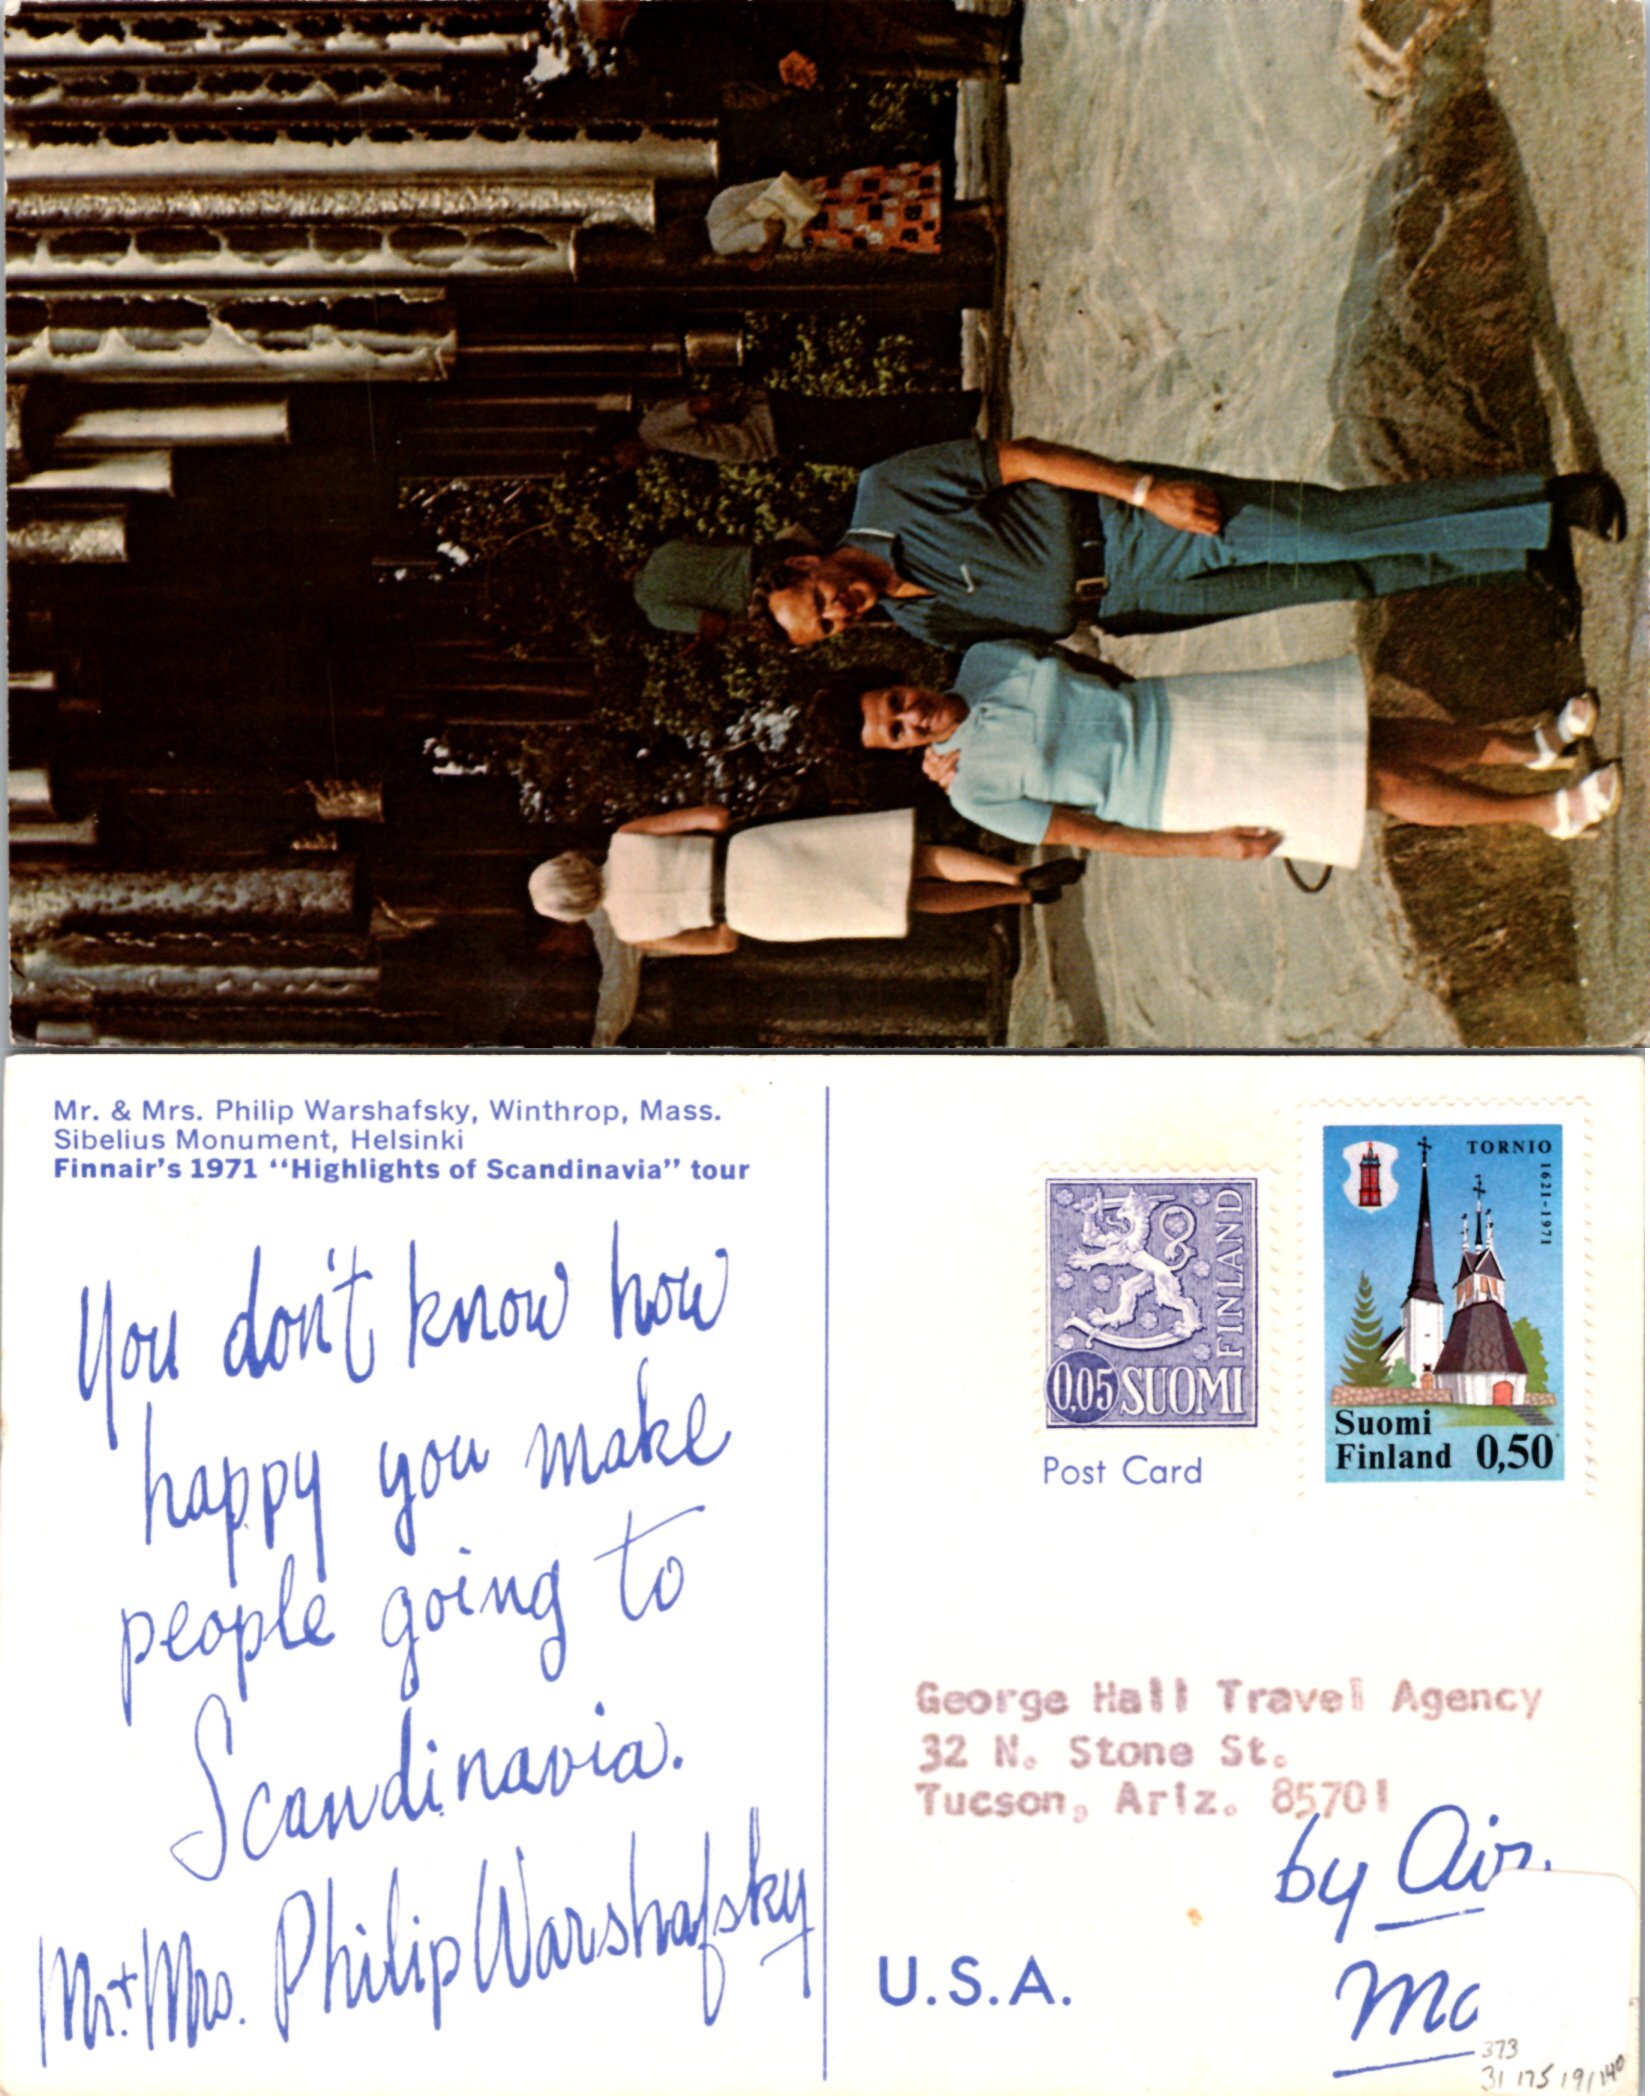 Mr. & Mrs. Philip Warshafsky, Winthrop, Mass.
Sibelius Monument, Helsinki
Finnair's 1971 "Highlights of Scandinavia" tour
You don't know how
happy you make
people going to
Scandinavia.
Mr. + Mrs. Philip Warshafsky
FINLAND
0,05 SUOMI
TORNIO
1621-1971
Suomi
Finland 0,50
Post Card
George Hall Travel Agency
32 N. Stone St.
Tucson, Ariz. 85701
by Air
U.S.A.
373
31 175 191140